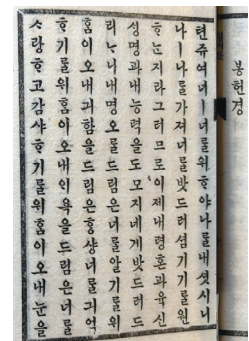 봉헌경
텬쥬여너ㅣ너를위ᄒᆞ야나를내셧시니
나ㅣ나를가져너를밧드러셤기기를원
ᄒᆞᄂᆞᆫ지라그러므로이제내령혼과육신
성명과내능력을도모지네게밧드러드
리ᄂᆞ니내명오를드림은너를알기를위
홈이오내긔함을드림은ᄒᆞᆼ샹너를긔억
ᄒᆞ기를위홈이오내인욕을드림은너를
ᄉᆞ랑ᄒᆞ고감샤ᄒᆞ기를위홈이오내눈을